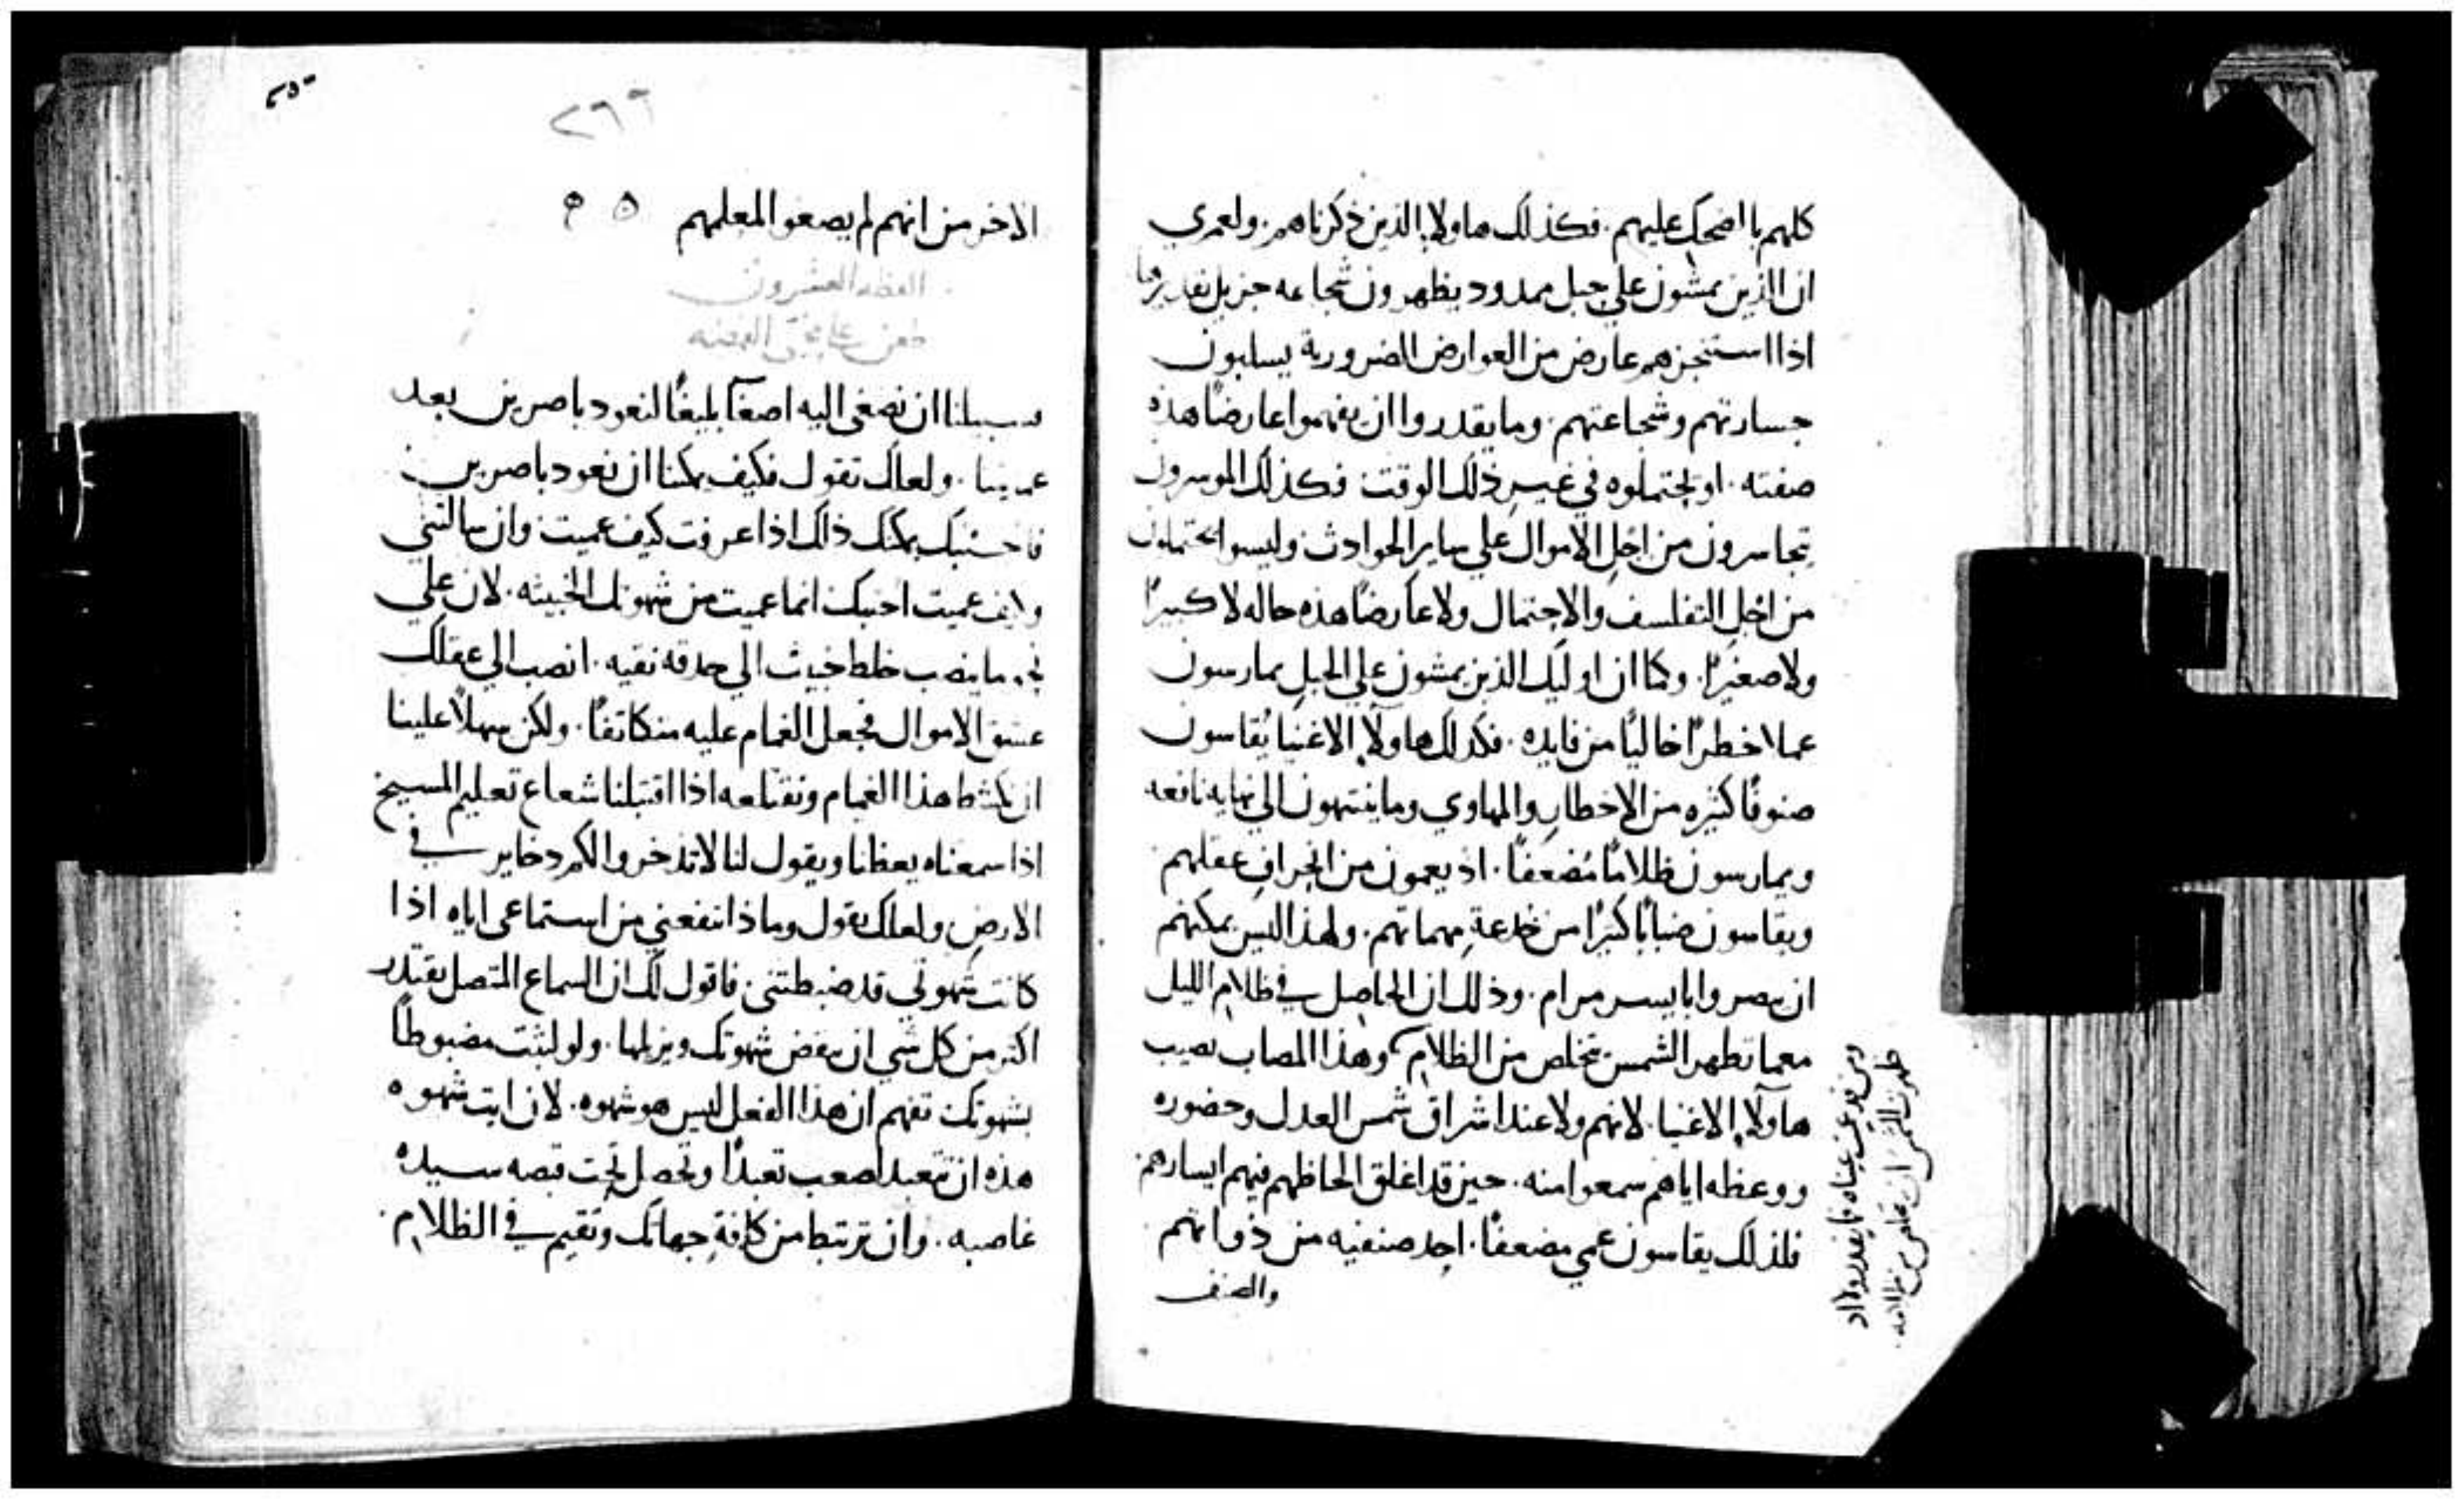 كلهم بااضحك عليهم. فكذلك هاولاء الذين ذكرناهم. ولعمري
ان الذين يمشون علي حبل ممدود يظهرون شجاعه جزيل تقديرها
اذا استنجزهم عارض من العوارض الضرورية يسلبون
جسارتهم وشجاعتهم. وما يقدروا ان يفهموا عارضًا هذه
صفته. او يحتملوه في غير ذلك الوقت فكذلك الموسرون
يتجاسرون من اجل الاموال علي ساير الحوادث وليسوا يحتملون
من اجل التفلسف والاحتمال ولا عارضًا هذه حاله لا كبيرًا
ولا صغيرًا. وكما ان اوليك الذين يمشون علي الحبل يمارسون
عملا خطرًا خاليًا من فايده. فكذلك هاولاء الاغنيا يُقاسون
صنوفًا كثيره من الاخطار والمهاوي وما ينتهون الي نهايه نافعه
ويمارسون ظلامًا مُضعفًا. اذ يعمون من انحراف عقلهم
ويقاسون ضبابًا كبيرًا من خدعة مهماتهم. ولهذا ليس يمكنهم
ان يبصروا بايسر مرام. وذلك ان الحاصل في ظلام الليل
معما تطهر الشمس يتخلص من الظلام وهذا المصاب يصيب
هاولاء الاغنيا. لانهم ولا عند اشراق شمس العدل وحضوره
ووعظه اياهم سمعوا منه. حين قد اغلق الحاظهم فيهم ايسارهم
فلذلك يقاسون عمي مضعفًا. احد صنفيه من ذواتهم
والصنف
ومن قد عميت عيناه فما يقدر ولا اذ
ظهرت الشمس ان يتخلص من ظلامه
٢٥٠
٢٦٦
الاخر من انهم لم يصغوا لمعلمهم
العظه العشرون
طعن علي محبي الفضه
فسبيلنا ان نصغي اليه اصغآ بليغًا لنعود باصرين بعد
عمينا. ولعلك تقول فكيف يمكنا ان نعود باصرين
فاجيبك يمكنك ذلك اذا عرفت كيف عميت وان سالتني
وكيف عميت اجبتك انما عميت من شهوتك الخبيثه. لان علي
نحو ما ينصب خلط خبيث الي حدقه نقيه. انصب الي عقلك
عشق الاموال فجعل الغمام عليه متكاثفًا. ولكن سهلاً علينا
ان نكشط هذا الغمام ونقلعه اذا اقتبلنا شعاع تعليم المسيح
اذا سمعناه يعظنا ويقول لنا لا تذخروا لكم دخاير في
الارض ولعلك تقول وماذا انفعني من استماعي اياه اذا
كانت شهوتي قد ضبطتني. فاقول لك ان السماع المتصل يقتدر
اكثر من كل شي ان ينقض شهوتك ويزيلها. ولو لبثت مضبوطًا
بشهوتك تفهم ان هذا الفعل ليس هو شهوه. لان ايت شهوه
هذه ان تتعبد اصعب تعبدًا وتحصل تحت قبضه سيده
غاصبه. وان ترتبط من كافة جهاتك وتقيم في الظلام.